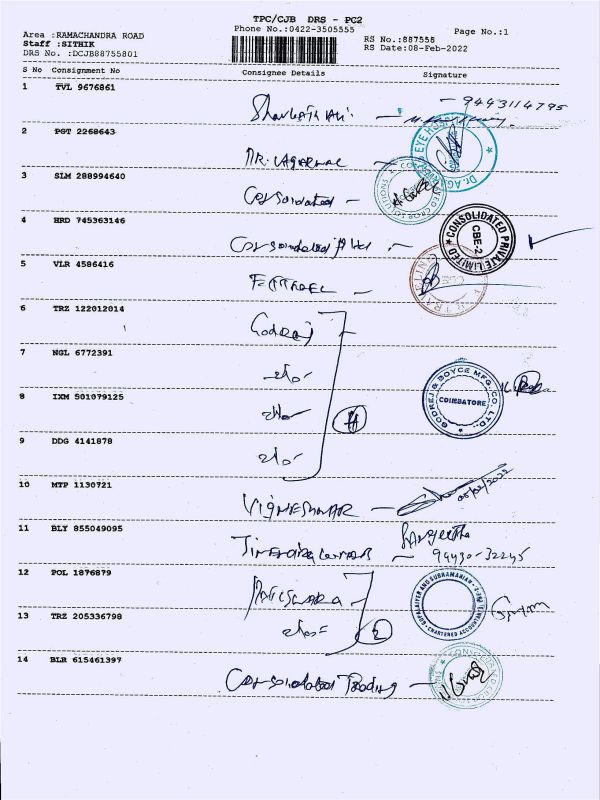 TPC/CJB DRS - PC2
Phone No.:0422-3505555
Page No.:1
Area :RAMACHANDRA ROAD
Staff :SITHIK
DRS No. :DCJB88755801
RS No.:887558
RS Date:08-Feb-2022
S No Consignment No Consignee Details Signature
1 TVL 9676861
9443114795
2 PGT 2268643
DR. Agarwal
EYE HOS
Dr. AGA
3 SLM 288994640
Consolidated
4 HRD 745363146
Consolidated P Ltd
CONSOLIDATED PRIVATE LIMITED
CBE-2
5 VLR 4586416
6 TRZ 122012014
Godrej
7 NGL 6772391
8 IXM 501079125
4
GODREJ & BOYCE MFG. CO. LTD.
COIMBATORE
9 DDG 4141878
10 MTP 1130721
VIGNESHWAR
08/02/2022
11 BLY 855049095
Sangeetha
99430-32245
12 POL 1876879
CHARTERED ACCOUNTANTS
13 TRZ 205336798
2
14 BLR 615461397
Consolidated Trading